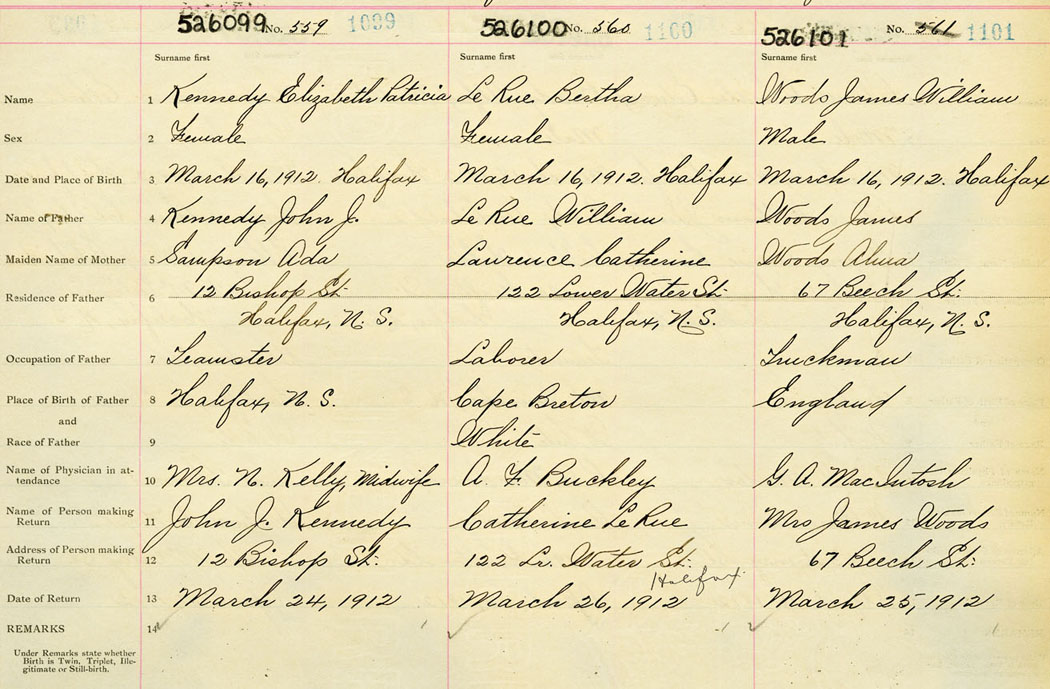 526099 No. 559 1099 526100 No. 560 1100 526101 No. 561 1101
Surname first Surname first Surname first
Name 1 Kennedy Elizabeth Patricia Le Rue Bertha Woods James William
Sex 2 Female Female Male
Date and Place of Birth 3 March 16, 1912. Halifax March 16, 1912. Halifax March 16, 1912. Halifax
Name of Father 4 Kennedy John J. Le Rue William Woods James
Maiden Name of Mother 5 Sampson Ada Lawrence Catherine Woods Alma
Residence of Father 6 12 Bishop St. 122 Lower Water St. 67 Beech St.
Halifax, N. S. Halifax, N. S. Halifax, N. S.
Occupation of Father 7 Teamster Laborer Truckman
Place of Birth of Father 8 Halifax, N. S. Cape Breton England
and
Race of Father 9 White
Name of Physician in at-
tendance 10 Mrs. N. Kelly, Midwife A. F. Buckley G. A. MacIntosh
Name of Person making
Return 11 John J. Kennedy Catherine Le Rue Mrs James Woods
Address of Person making
Return 12 12 Bishop St. 122 Lr. Water St. 67 Beech St.
Halifax
Date of Return 13 March 24, 1912 March 26, 1912 March 25, 1912
REMARKS 14
Under Remarks state whether
Birth is Twin, Triplet, Ille-
gitimate or Still-birth.